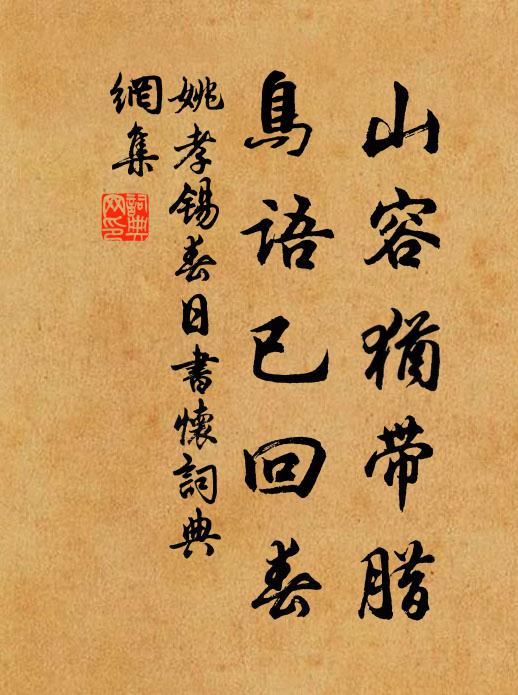 山容猶带腊
鳥語已回春
姚孝锡春日書懷詞典
網集
詞典
网印